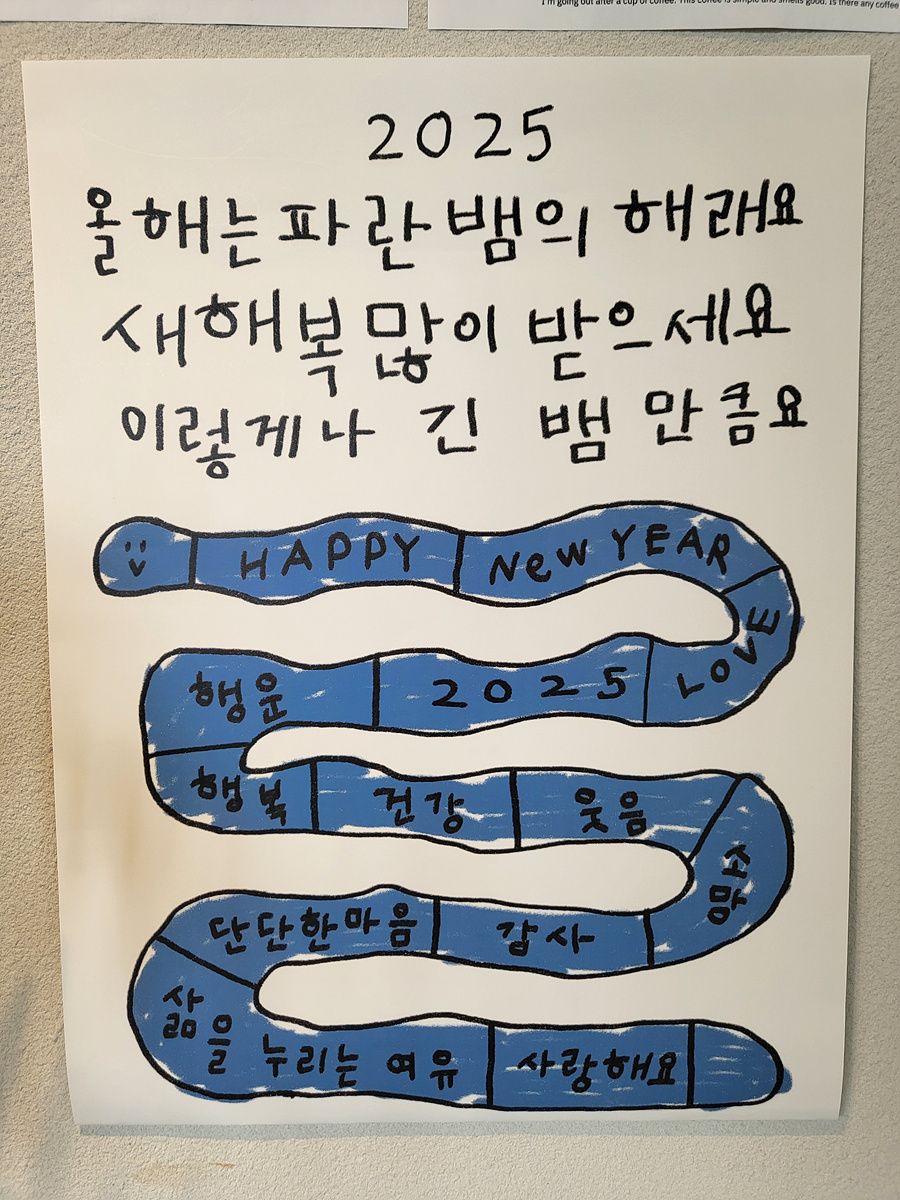 I'm going out after a cup of coffee. This coffee is simple and smells good. Is there any coffee
2025
올해는 파란 뱀의 해래요
새해복 많이 받으세요
이렇게나 긴 뱀 만큼요
HAPPY
NeW YEAR
LOVE
2025
행운
행복
건강
웃음
소망
감사
단단한마음
삶을 누리는 여유
사랑해요